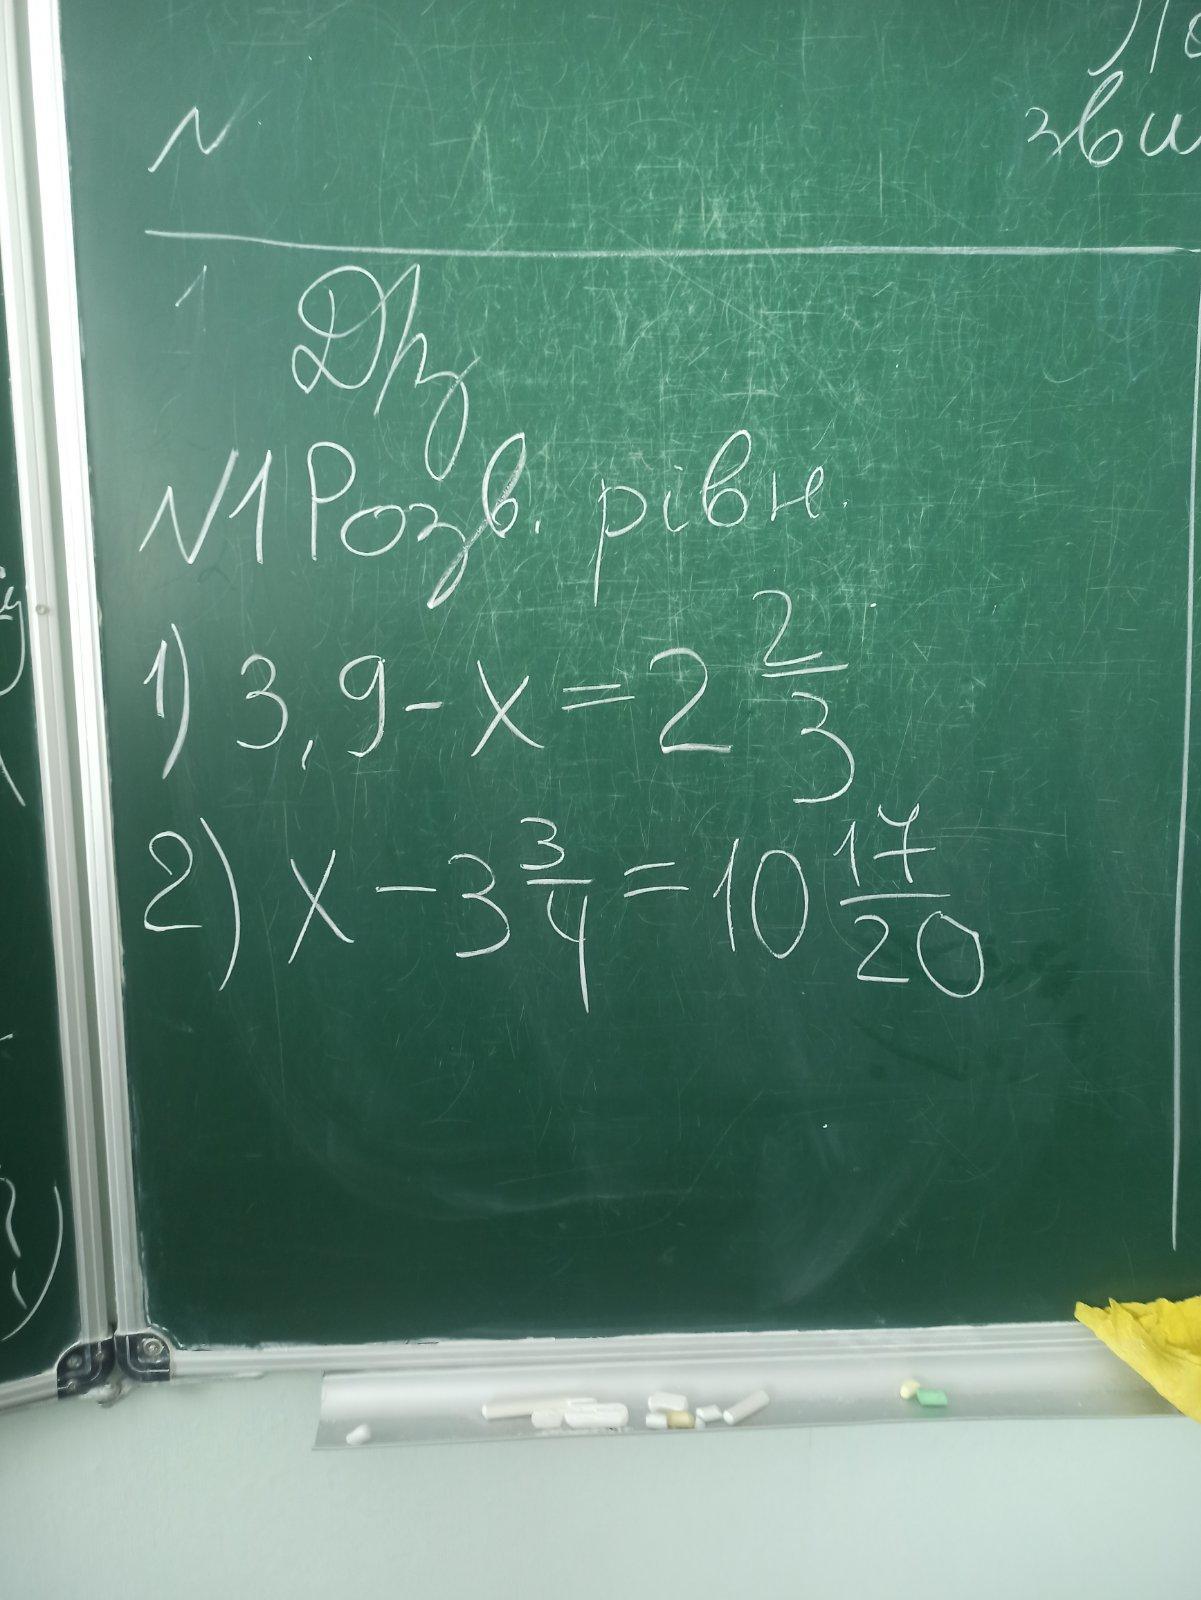 N
1 Дз
N1 Розв. рівн.
1) 3,9 - x = 2 2/3
2) x - 3 3/4 = 10 17/20